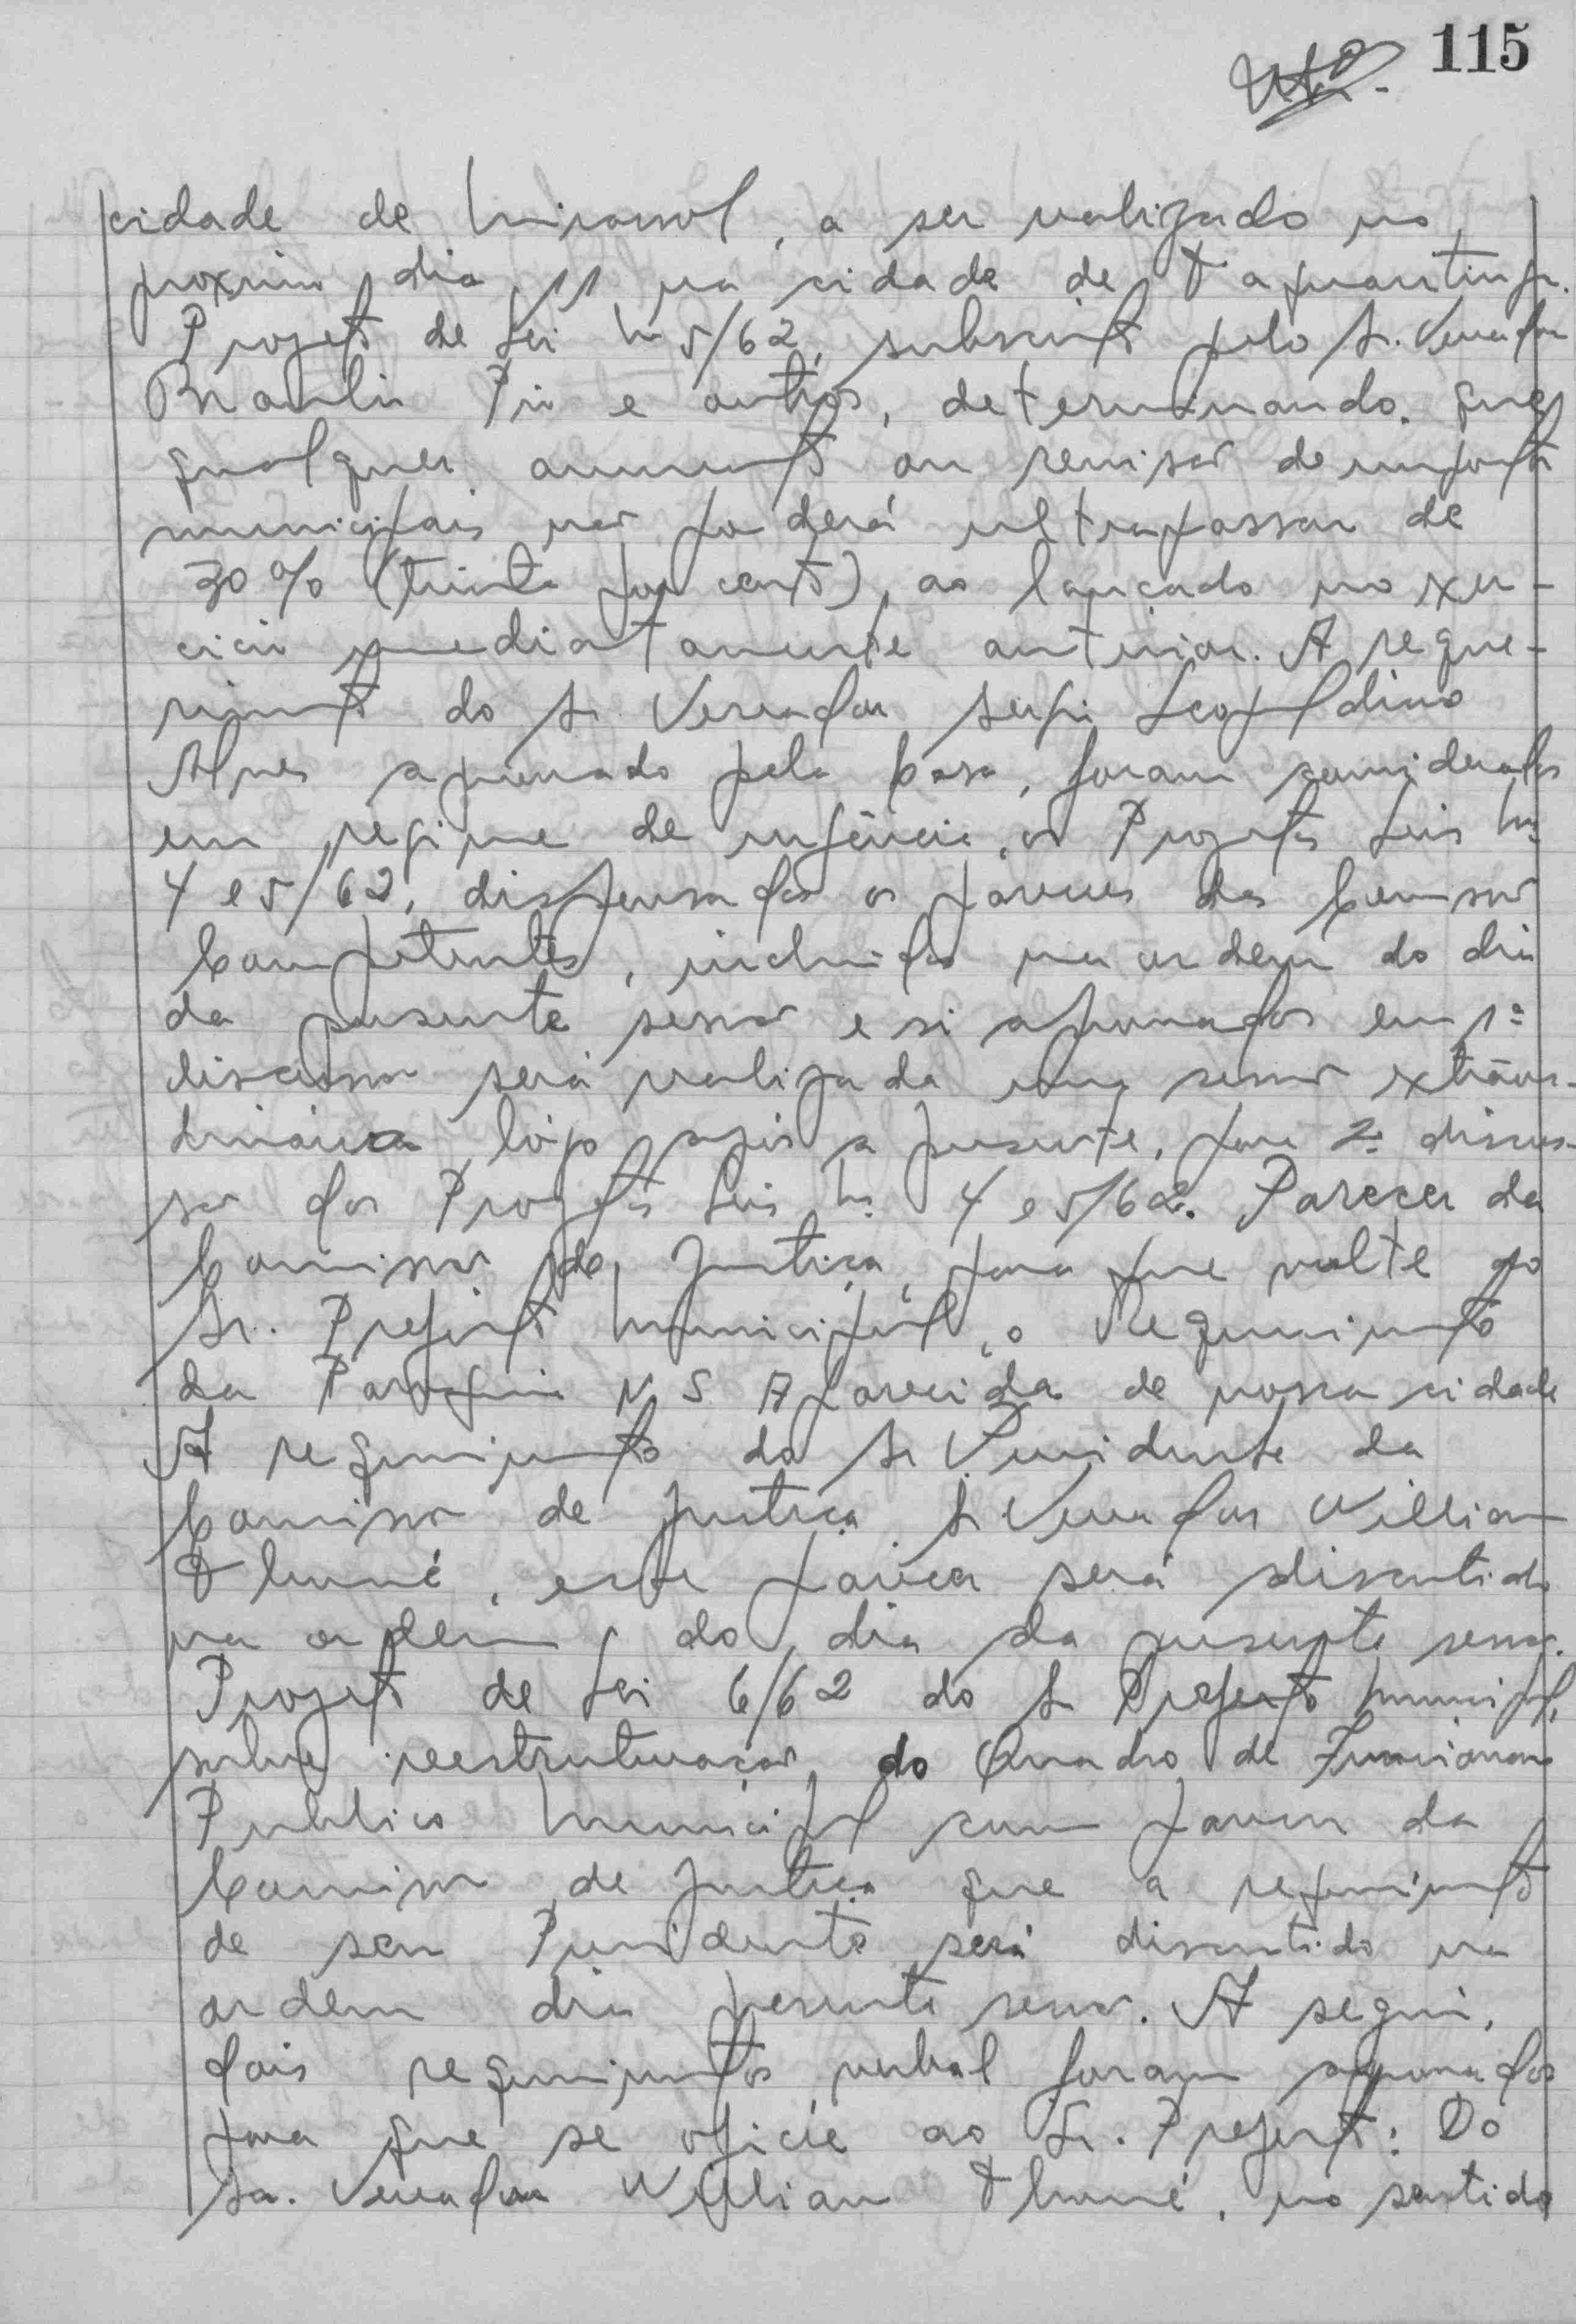 115
cidade de Mirassol, a ser realizado no
proximo dia 11 na cidade de Taquaritinga.
Projeto de Lei Nº 5/62, subscrito pelo Sr. Vereador
Braulio Pio e outros, determinando que
qualquer aumento ou revisão de impostos
municipais não poderá ultrapassar de
30% (trinta por cento), ao lançado no exer-
cicio imediatamente anterior. A reque-
rimento do Sr Vereador Sergio Leopoldino
Alves aprovado pela Casa, foram considerados
em regime de urgência, os Projetos Leis Nº
4 e 5/62, dispensados os pareces das Comissão
Competentes, incluidos na ordem do dia
da presente sessão e si aprovados em 1ª
discussão será realizada uma sessão extraor-
dinária logo após a presente, para 2ª discus-
são dos Projetos Leis Nº 4 e 5/62. Parecer da
Comissão de Justiça, para que volte ao
Sr. Prefeito Municipal, o Requerimento
da Paroquia N S Aparecida de nossa cidade
A requerimento do Sr Presidente da
Comissão de Justiça Sr Vereador Willian
Thomé, este parecer será discutido
na ordem do dia da presente sessão.
Projeto de Lei 6/62 do Sr Prefeito Municipal,
sobre reestruturação do Quadro de Funcionario
Publico Municipal com parecer da
Comissão de Justiça que a requerimento
de seu Presidente será discutido na
ordem dia presente sessão. A seguir,
dois requerimentos verbal foram aprovados
para que se oficie ao Sr. Prefeito: Do
Sr. Vereador Willian Thomé, no sentido